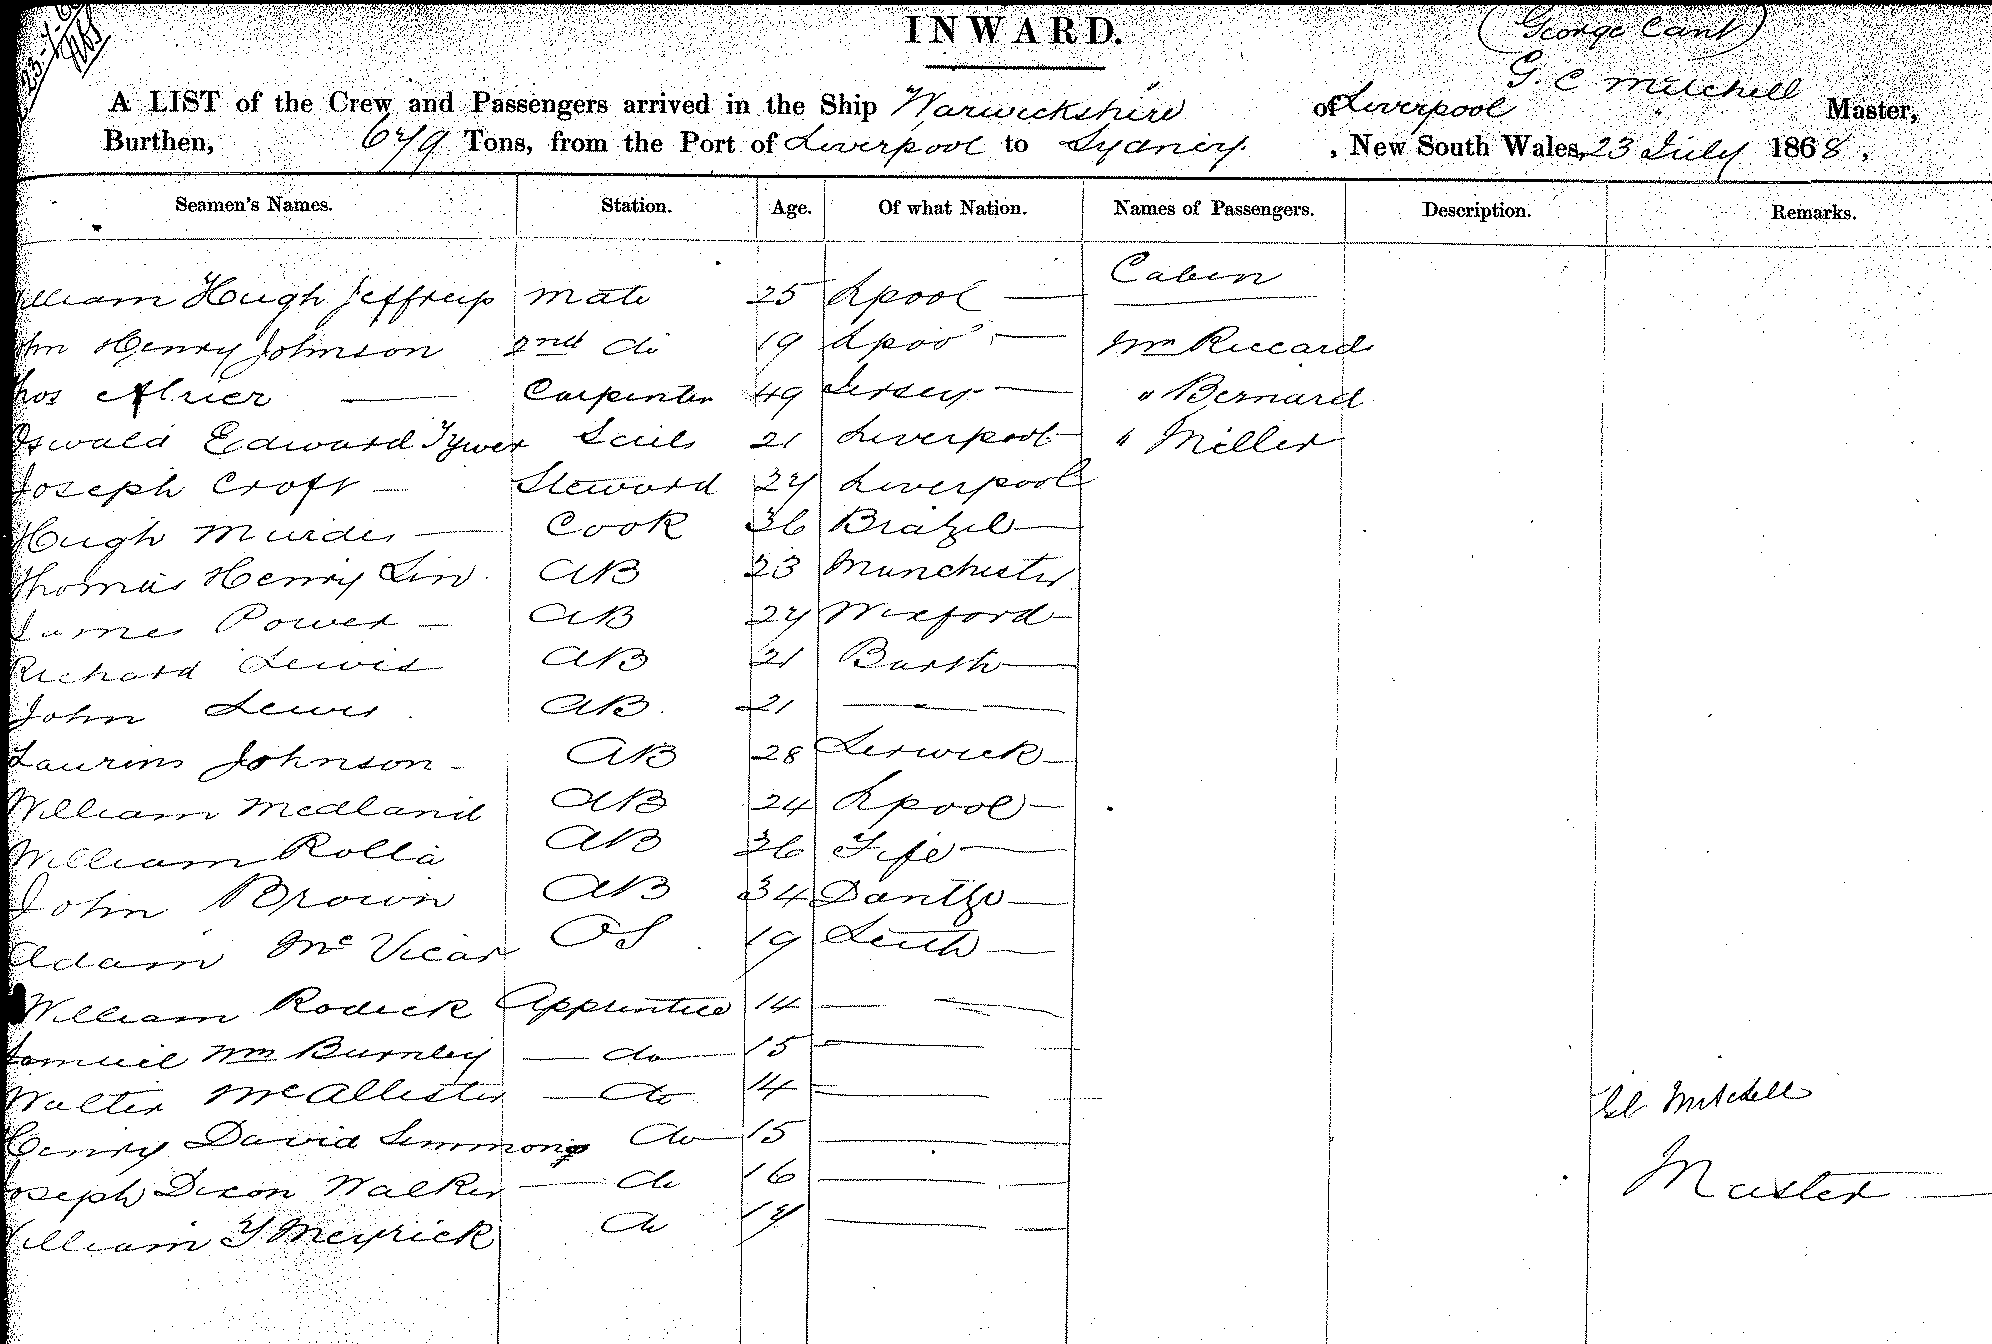 INWARD.
(George Cant)
G. C Mitchell
A LIST of the Crew and Passengers arrived in the Ship Warwickshire of Liverpool Master,
Burthen, 679 Tons, from the Port of Liverpool to Sydney. , New South Wales, 23 July 1868.
Seamen's Names. Station. Age. Of what Nation. Names of Passengers. Description. Remarks.
Cabin
illiam Hugh Jeffreys Mate 25 Lpool —
ohn Henry Johnson 2nd do 19 Lpool — Mr Riccard
hos — Carpenter 49 Jersey — " Bernard
Oswald Edward Tywer Sails 21 Liverpool — " Miller
Joseph Croft — Steward 27 Liverpool
Hugh — Cook 36 Brazil —
Thomas Henry Lin. AB 23 Manchester
James Power — AB 27 Wexford —
Richard Lewis AB 21 —
John Lewis. AB. 21 — —
Johnson - AB 28 Lerwick —
William Medland AB 24 Lpool —
William Rolla AB 36 Fife —
John Brown AB 34 —
Adam McVicar OS 19 Leith —
William Rodick Apprentice 14 — —
Samuel Wm Burnley — do — 15 — —
Walter McAllister — do 14 — —
Mitchell
Henry David Simmons do — 15 — —
Joseph Dixon Walker — do 16 — —
Master —
William Y Meyrick do 17 — —